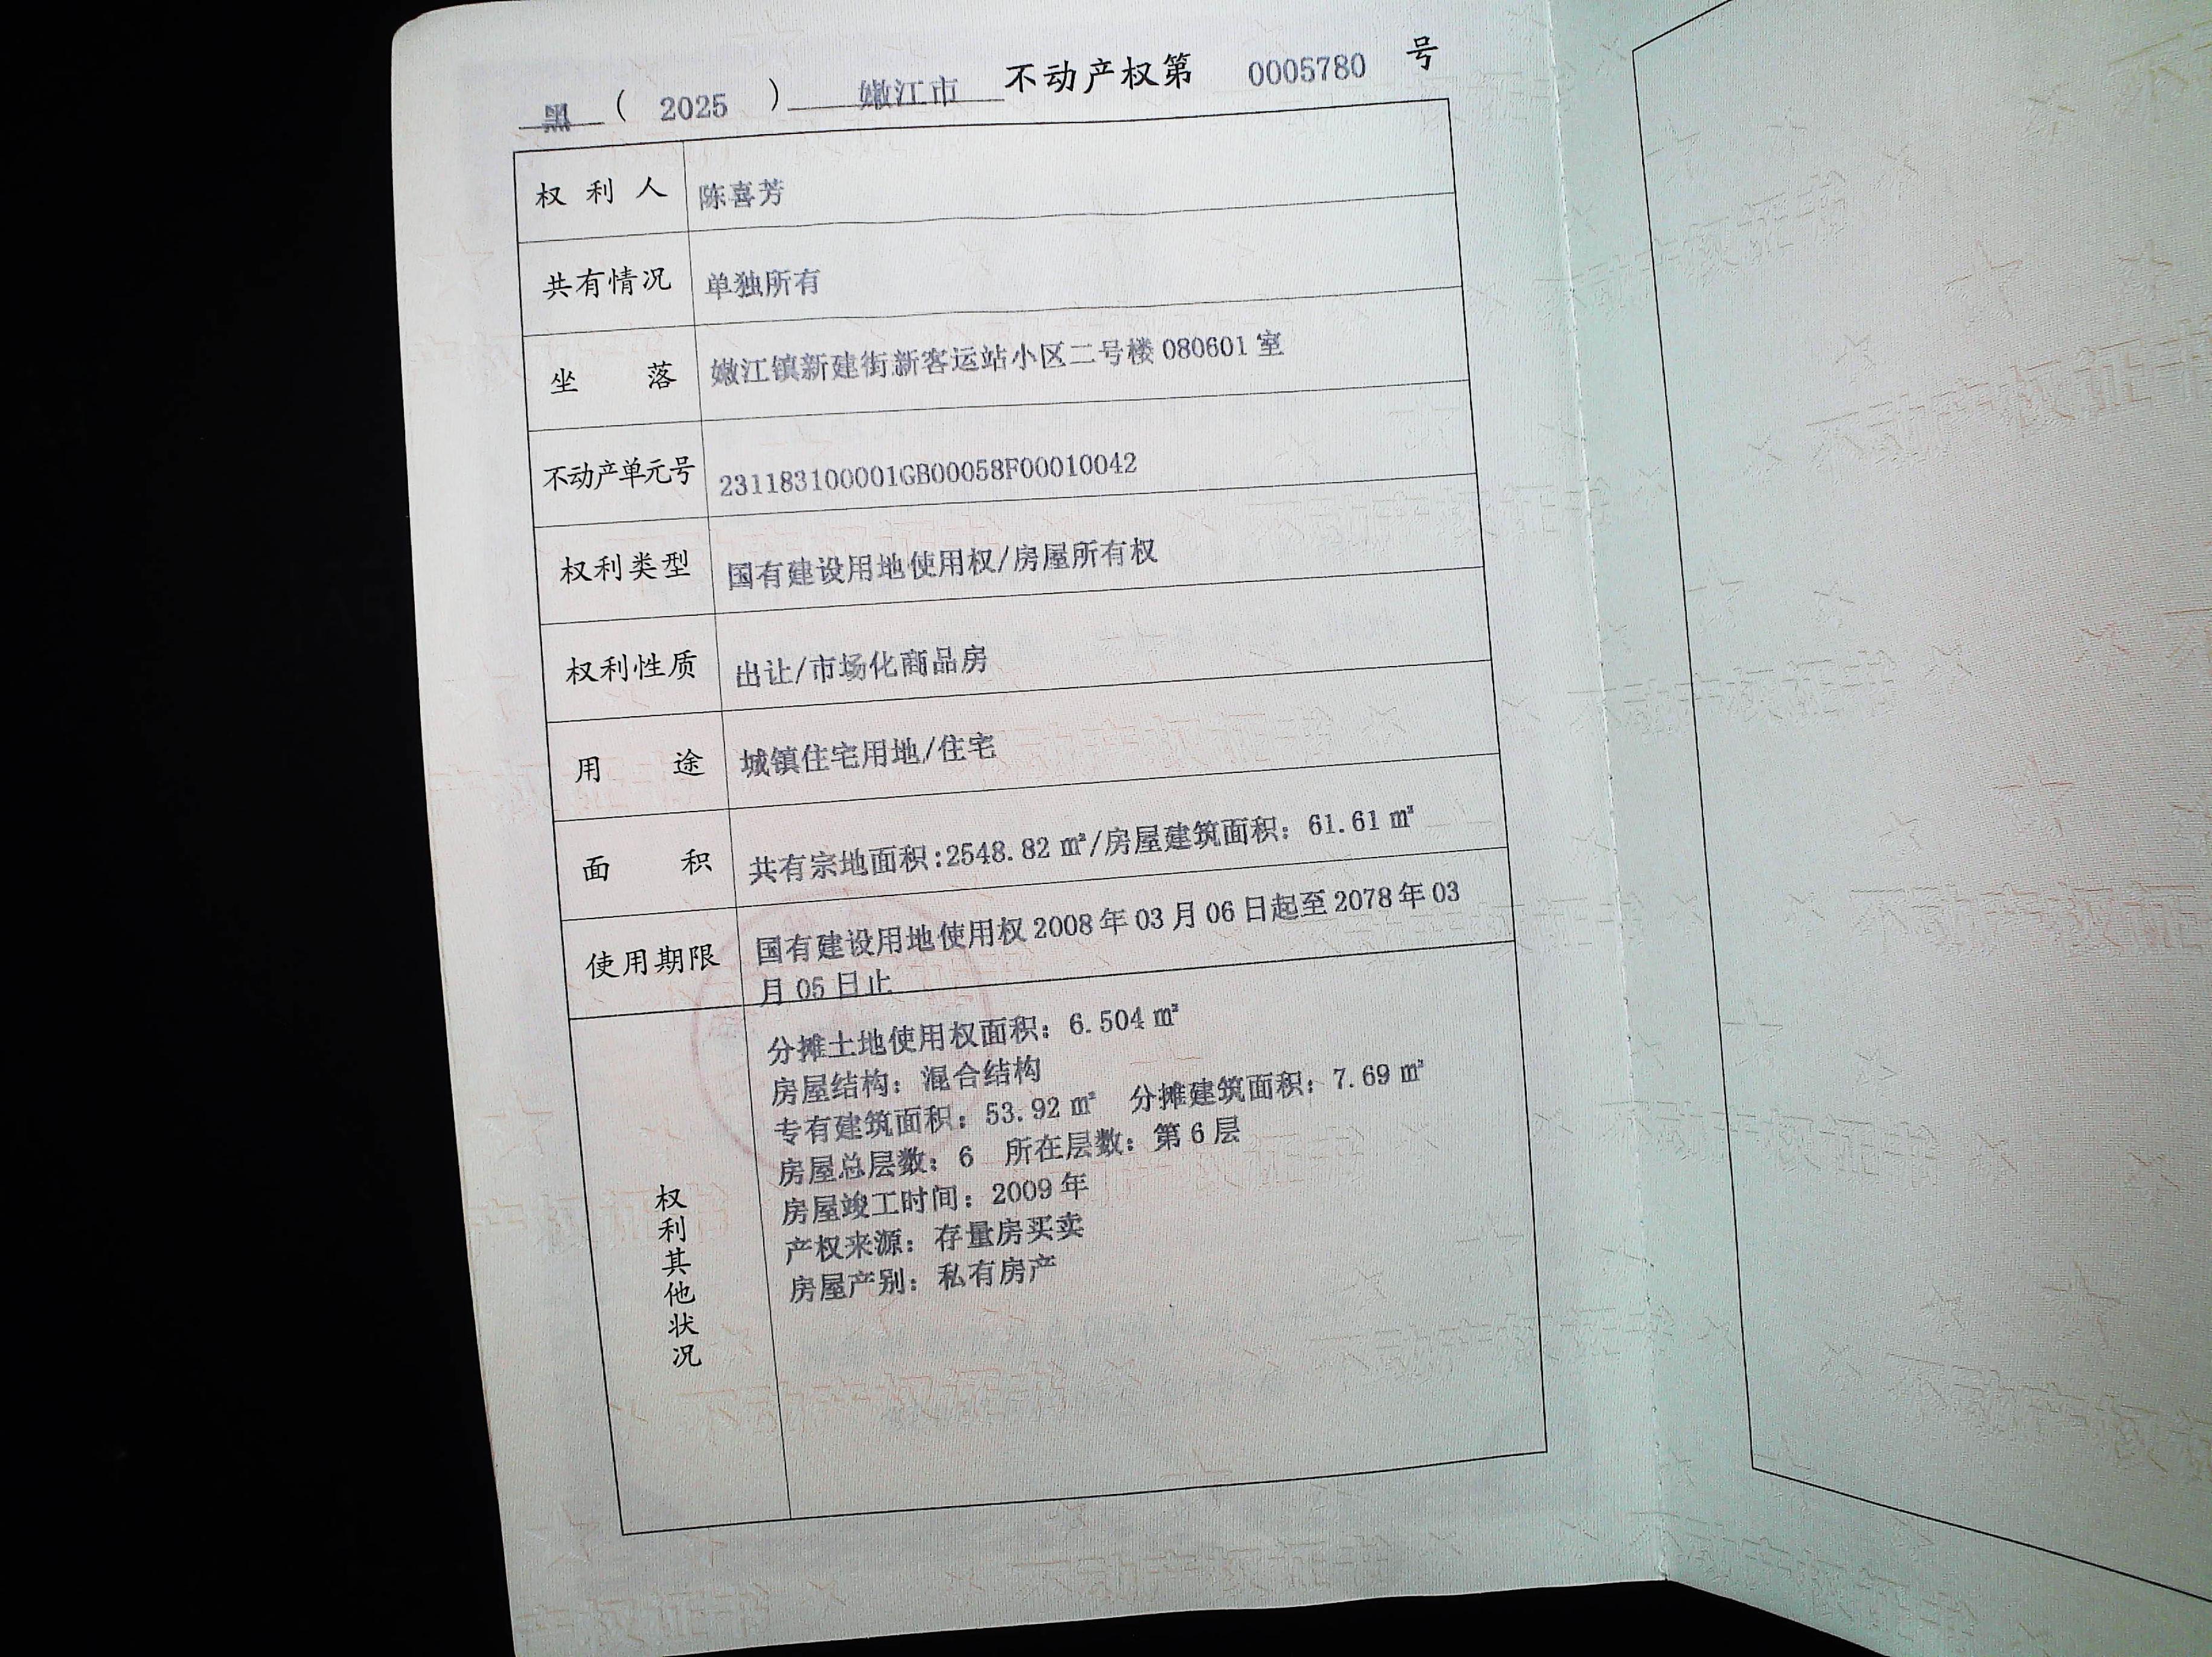 黑 ( 2025 ) 嫩江市 不动产权第 0005780 号
权利人 陈喜芳
共有情况 单独所有
坐落 嫩江镇新建街新客运站小区二号楼 080601 室
不动产单元号 231183100001GB00058F00010042
权利类型 国有建设用地使用权/房屋所有权
权利性质 出让/市场化商品房
用途 城镇住宅用地/住宅
面积 共有宗地面积:2548.82 ㎡/房屋建筑面积：61.61 ㎡
使用期限 国有建设用地使用权 2008 年 03 月 06 日起至 2078 年 03
月 05 日止
权利其他状况
分摊土地使用权面积：6.504 ㎡
房屋结构：混合结构
专有建筑面积：53.92 ㎡ 分摊建筑面积：7.69 ㎡
房屋总层数：6 所在层数：第 6 层
房屋竣工时间：2009 年
产权来源：存量房买卖
房屋产别：私有房产